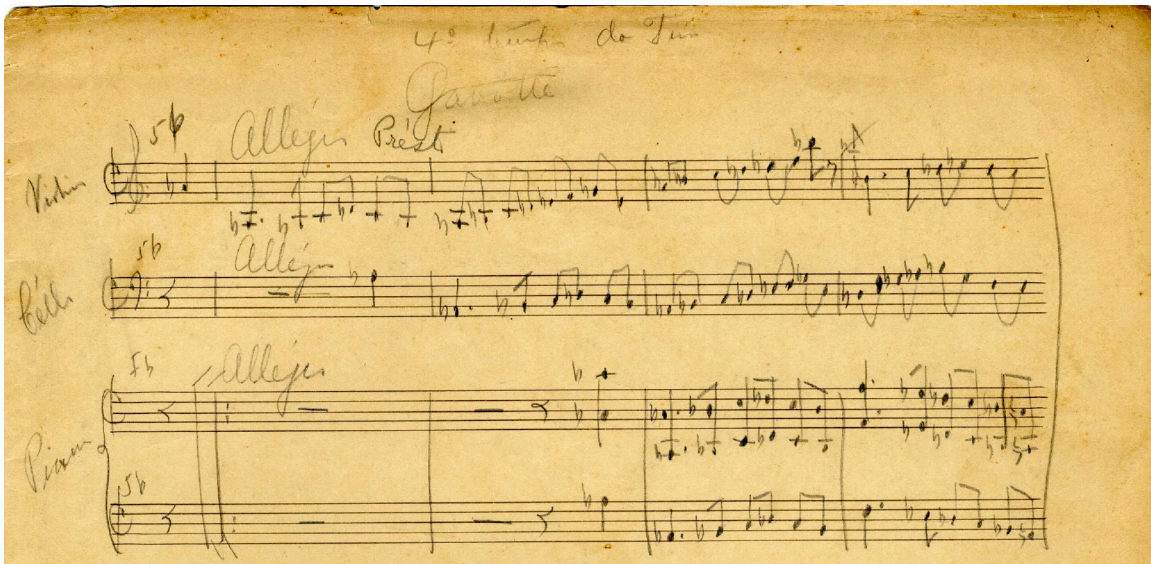 4º do
Gavotte
5b Allegro Presto
Violin
5b Allegro
Cello
5b Allegro
Piano
5b